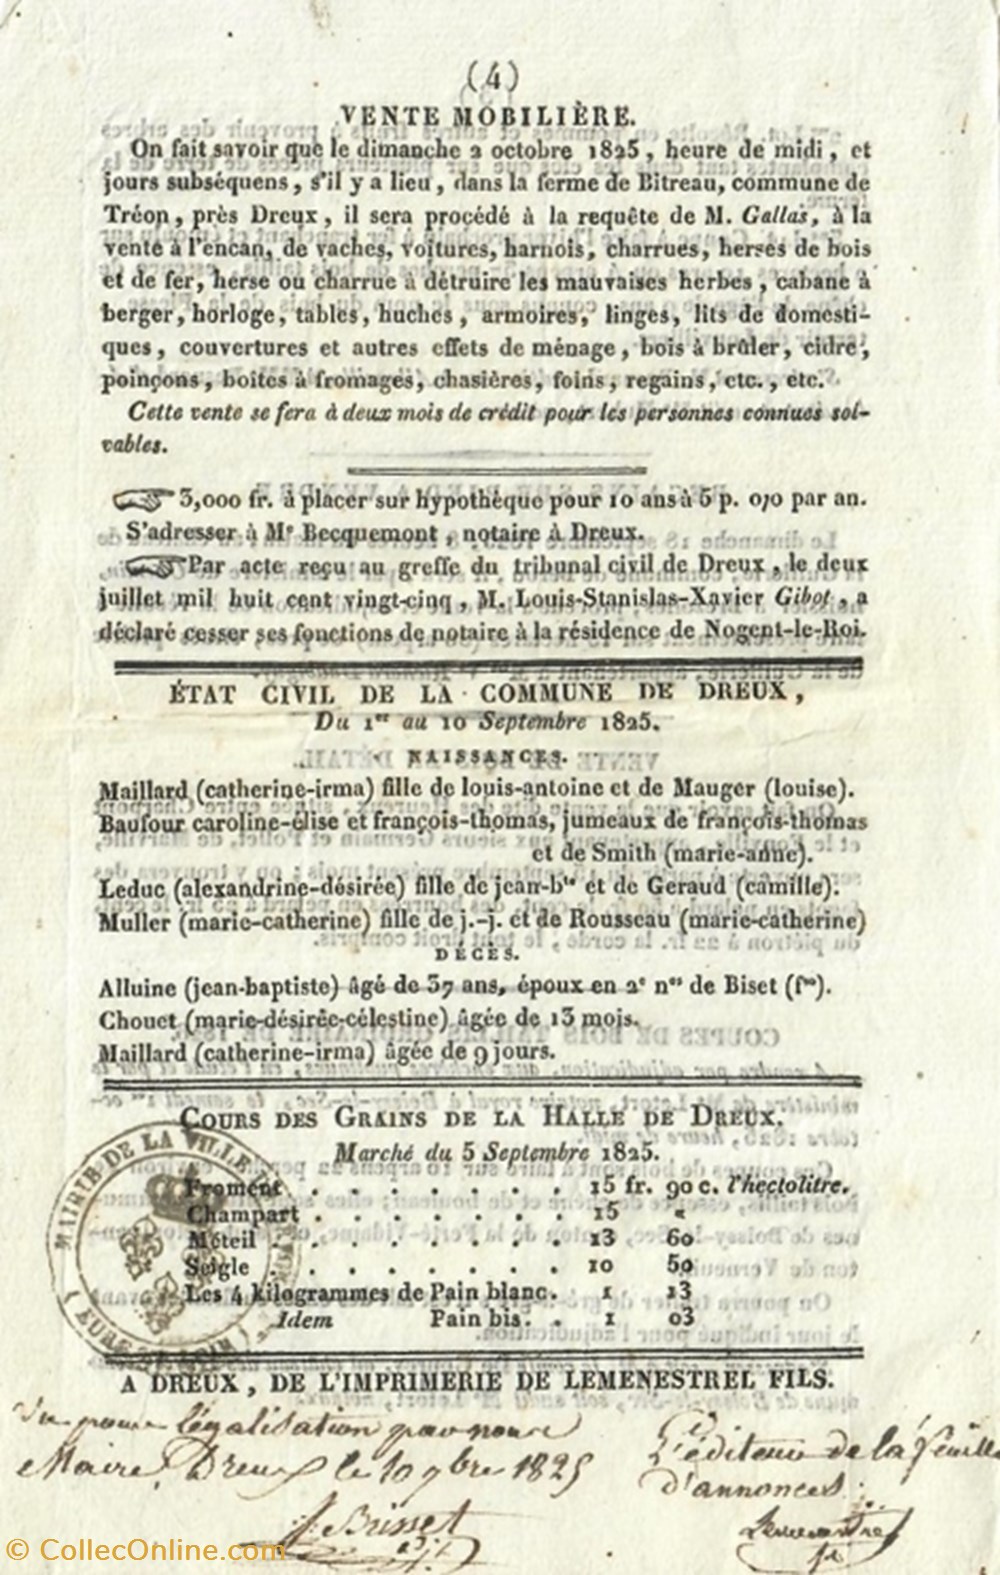 (4)
VENTE MOBILIÈRE.
On fait savoir que le dimanche 2 octobre 1825, heure de midi, et
jours subséquens, s'il y a lieu, dans la ferme de Bitreau, commune de
Tréon, près Dreux, il sera procédé à la requête de M. Gallas, à la
vente à l'encan, de vaches, voitures, harnois, charrues, herses de bois
et de fer, herse ou charrue à détruire les mauvaises herbes, cabane à
berger, horloge, tables, huches, armoires, linges, lits de domesti-
ques, couvertures et autres effets de ménage, bois à brûler, cidre,
poinçons, boîtes à fromages, chasières, foins, regains, etc., etc.
Cette vente se fera à deux mois de crédit pour les personnes connues sol-
vables.
3,000 fr. à placer sur hypothèque pour 10 ans à 5 p. 0/0 par an.
S'adresser à Me Becquemont, notaire à Dreux.
Par acte reçu au greffe du tribunal civil de Dreux, le deux
juillet mil huit cent vingt-cinq, M. Louis-Stanislas-Xavier Gibot, a
déclaré cesser ses fonctions de notaire à la résidence de Nogent-le-Roi.
ÉTAT CIVIL DE LA COMMUNE DE DREUX,
Du 1er au 10 Septembre 1825.
NAISSANCES.
Maillard (catherine-irma) fille de louis-antoine et de Mauger (louise).
Baufour caroline-élise et françois-thomas, jumeaux de françois-thomas
et de Smith (marie-anne).
Leduc (alexandrine-désirée) fille de jean-bte et de Geraud (camille).
Muller (marie-catherine) fille de j.-j. et de Rousseau (marie-catherine)
DÉCÈS.
Alluine (jean-baptiste) âgé de 37 ans, époux en 2e nes de Biset (fse).
Chouet (marie-désirée-célestine) âgée de 13 mois.
Maillard (catherine-irma) âgée de 9 jours.
COURS DES GRAINS DE LA HALLE DE DREUX.
Marché du 5 Septembre 1825.
Froment . . . . . . . 15 fr. 90 c. l'hectolitre.
Champart . . . . . . . 15 «
Méteil . . . . . . . . 13 60
Seigle . . . . . . . . 10 50
Les 4 kilogrammes de Pain blanc. 1 13
Idem Pain bis. . 1 03
MAIRIE DE LA VILLE DE DREUX
(EURE ET LOIR)
A DREUX, DE L'IMPRIMERIE DE LEMENESTREL FILS.
Vu pour légalisation par nous
Maire, Dreux le 10 7bre 1825
Brisset
L'éditeur de la feuille
d'annonces
© CollecOnline.com